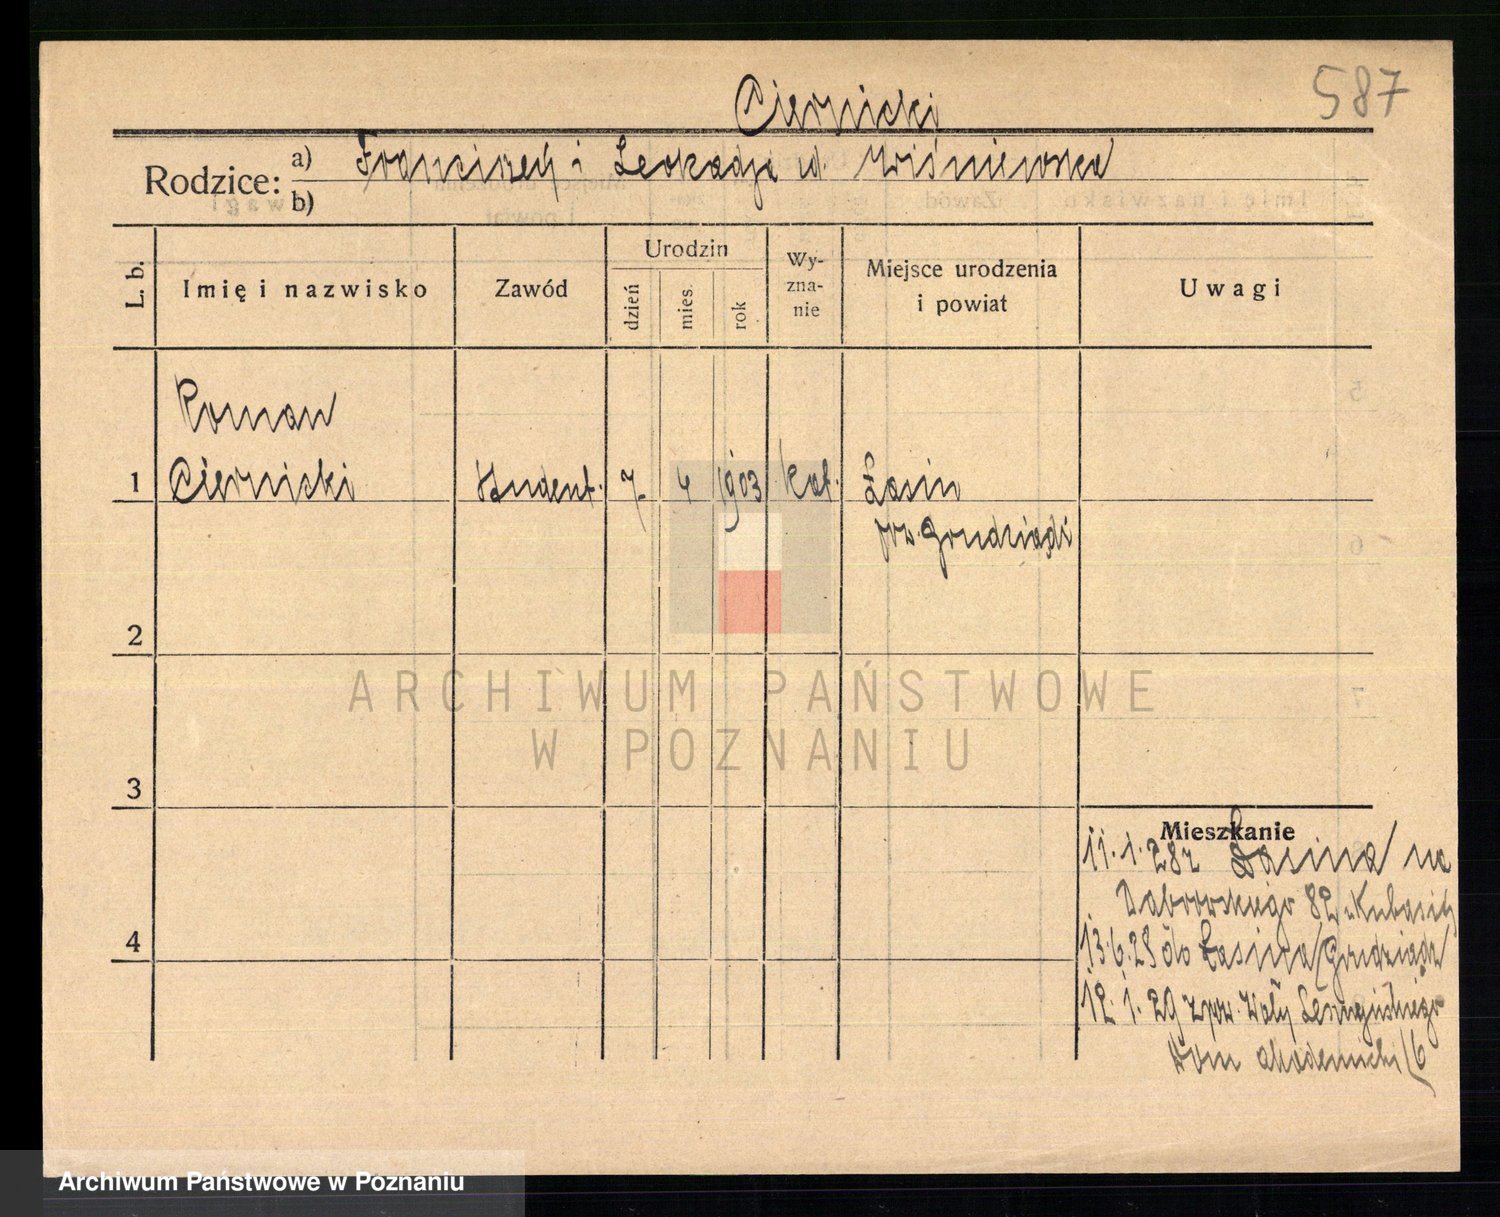 587
Ciernicki
Rodzice: a) Franciszek i Leokadja ur. Wiśniewska
b)
L. b. Imię i nazwisko Zawód Urodzin dzień mies. rok Wy-zna-nie Miejsce urodzenia i powiat Uwagi
Roman
1 Ciernicki student. 7. 4 1903 kat. Łasin
pow. Grudziądz
2
ARCHIWUM PAŃSTWOWE
W POZNANIU
3
Mieszkanie
11. 1. 28 z Łasina na
Dąbrowskiego 82
4
13. 6. 28 do Łasina / Grudziądz
12. 1. 29 z pow. Wały Leszczyńskiego
Dom akademicki / 6
Archiwum Państwowe w Poznaniu